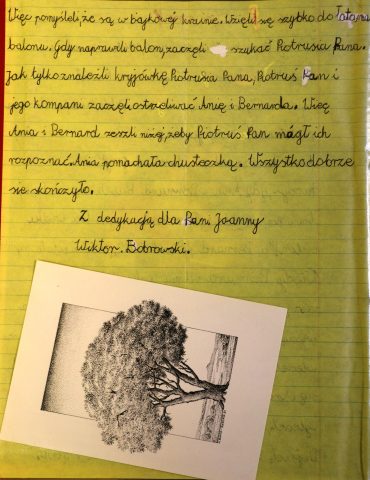 Więc pomyśleli, że są w bajkowej krainie. Wzięli się szybko do łatania
balonu. Gdy naprawili balon, zaczęli szukać Piotrusia Pana.
Jak tylko znaleźli kryjówkę Piotrusia Pana, Piotruś Pan i
jego kompani zaczęli ostrzeliwać Anię i Bernarda. Więc
Ania i Bernard zeszli niżej, żeby Piotruś Pan mógł ich
rozpoznać. Ania pomachała chusteczką. Wszystko dobrze
się skończyło.
Z dedykacją dla Pani Joanny
Wiktor.